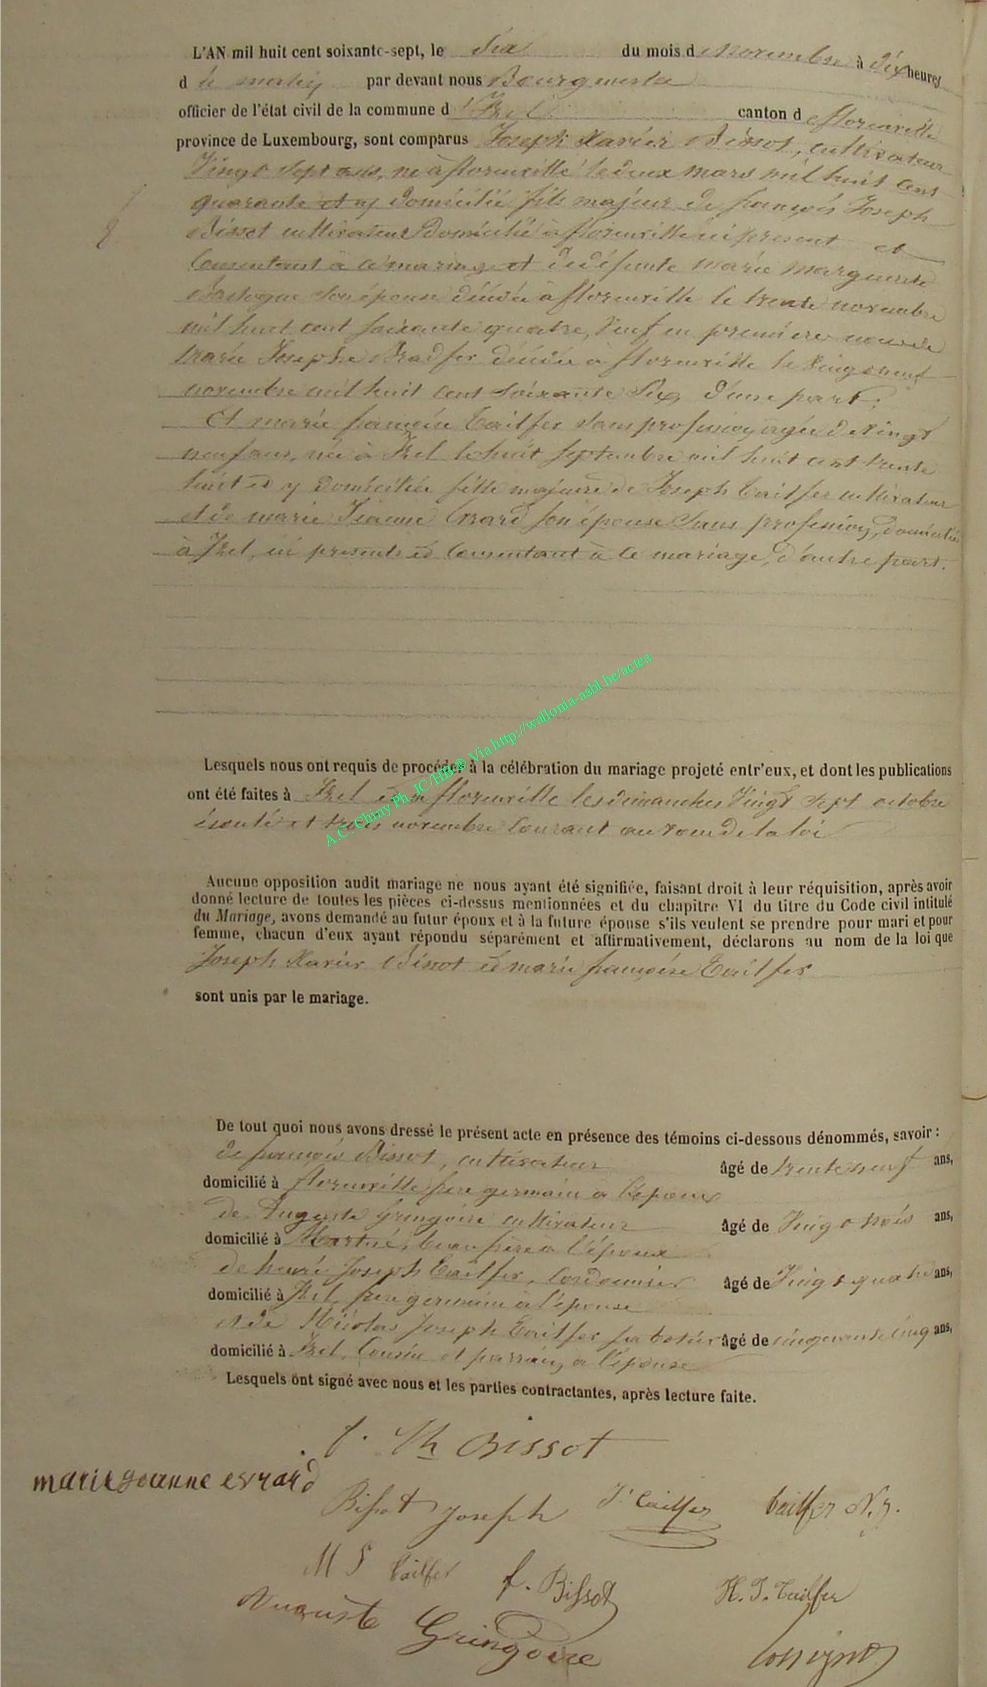 L'AN mil huit cent soixante-sept, le Six du mois d novembre à dix heures
d u matin par devant nous Bourgmestre
officier de l'état civil de la commune d 'Izel canton d florenville
province de Luxembourg, sont comparus Joseph Xavier Bissot, cultivateur
Vingt Sept ans, né à florenville le deux mars mil huit cent
quarante et y domicilié fils majeur de françois Joseph
Bissot cultivateur Domicilié à florenville ici present et
Consentant à ce mariage et de défunte marie marguerite
son épouse décédée à florenville le trente novembre
mil huit cent soixante quatre, Veuf en première noce de
marie Josephe Bradfer décédée à florenville le Vingt neuf
novembre mil huit cent soixante Six, d'une part;
Et marie françoise Tailfer Sans profession, agée de Vingt
neuf ans, née à Izel le huit Septembre mil huit cent trente
huit et y domiciliée fille majeure de Joseph Tailfer cultivateur
et de marie Jeanne Evrard Son épouse Sans profession, domiciliés
à Izel, ici presents et Consentant à ce mariage, d'autre part.
A.C. Chiny Ph. JC/HB @ Via http://wallonia-asbl.be/actea
Lesquels nous ont requis de procéder à la célébration du mariage projeté entr'eux, et dont les publications
ont été faites à Izel et à florenville les dimanches Vingt Sept octobre
écoulé et trois novembre Courant au voeu de la loi
Aucune opposition audit mariage ne nous ayant été signifiée, faisant droit à leur réquisition, après avoir
donné lecture de toutes les pièces ci-dessus mentionnées et du chapitre VI du titre du Code civil intitulé
du Mariage, avons demandé au futur époux et à la future épouse s'ils veulent se prendre pour mari et pour
femme, chacun d'eux ayant répondu séparément et affirmativement, déclarons au nom de la loi que
Joseph Xavier Bissot et marie françoise Tailfer
sont unis par le mariage.
De tout quoi nous avons dressé le présent acte en présence des témoins ci-dessous dénommés, savoir:
de françois Bissot, cultivateur âgé de trente neuf ans,
domicilié à florenville frère germain à l'époux
de Auguste Gringoire cultivateur âgé de Vingt trois ans,
domicilié à beau frère à l'époux
de henri Joseph Tailfer, Cordonnier âgé de Vingt quatre ans,
domicilié à Izel, frère germain à l'épouse
et de Nicolas Joseph Tailfer sabotier âgé de cinquante cinq ans,
domicilié à Izel, Cousin et parrain, à l'épouse
Lesquels ont signé avec nous et les parties contractantes, après lecture faite.
Bissot
marie jeanne evrard
Bissot Joseph J. Tailfer tailfer N. J.
M F tailfer f. Bissot H. J. Tailfer
Auguste Gringoire